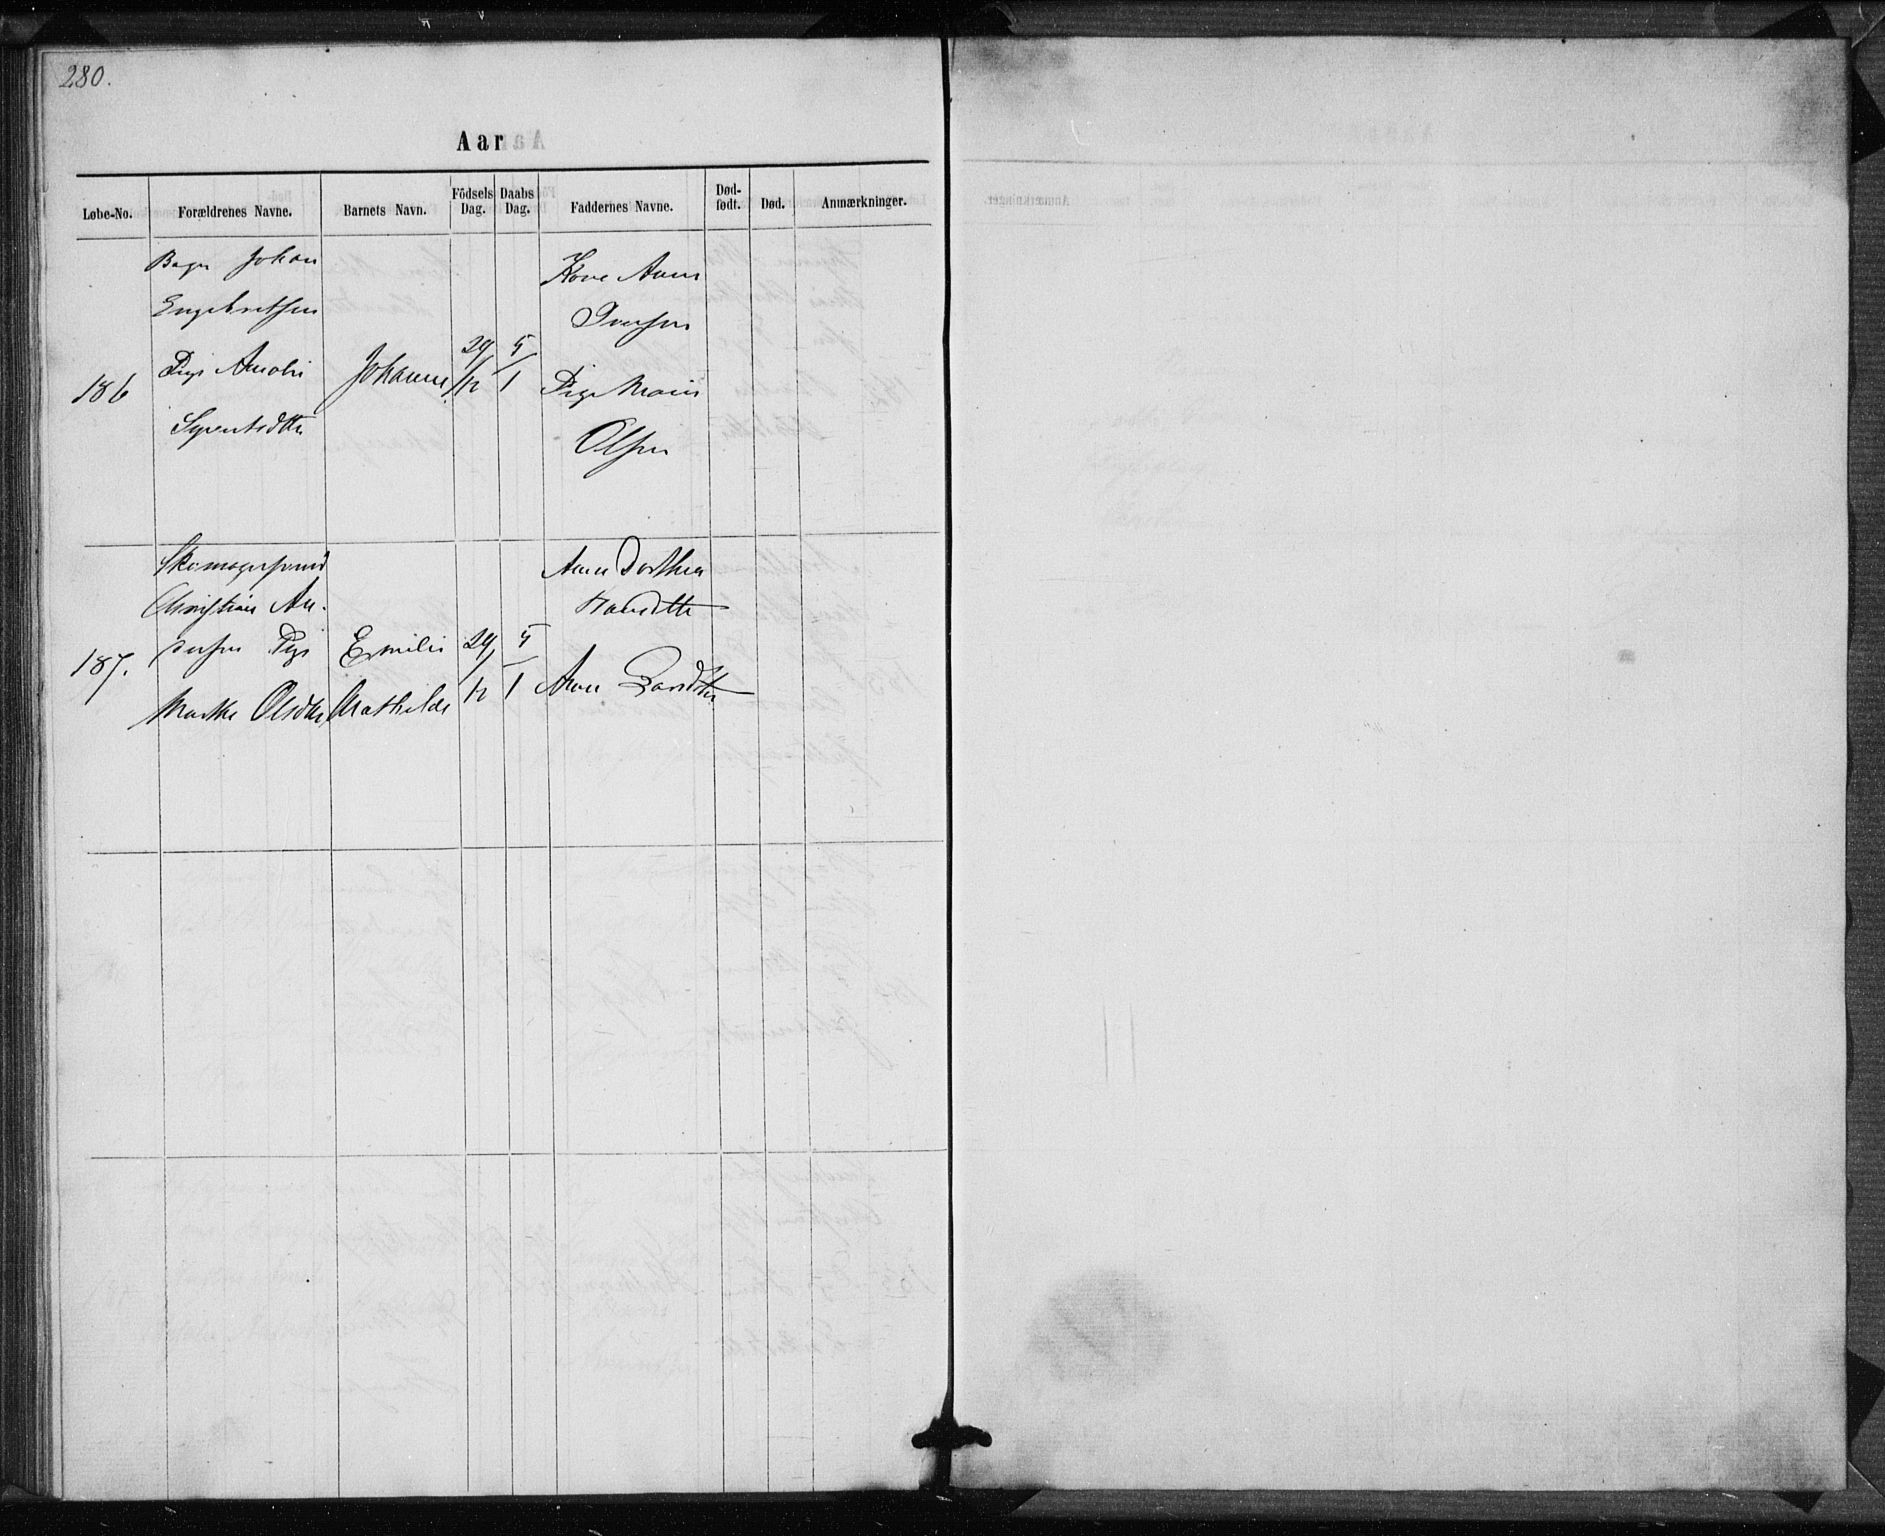 280.
Aar
Løbe-No.
Forældrenes Navne.
Barnets Navn.
Födsels Dag.
Daabs Dag.
Faddernes Navne.
Død-født.
Død.
Anmærkninger.
186
Bager Johan
Engebretsen
Pige Amalie
Syvertsdtter
Johanne
29/12
5/1
Kone Anne
Iversen
Pige Marie
Olsen
187.
Skomagersvend
Christian An-
dersen Pige
Marthe Olsdtter
Emilie
Mathilde
29/12
5/1
Anne Dorthea
Hansdtter
Anne Larsdtter